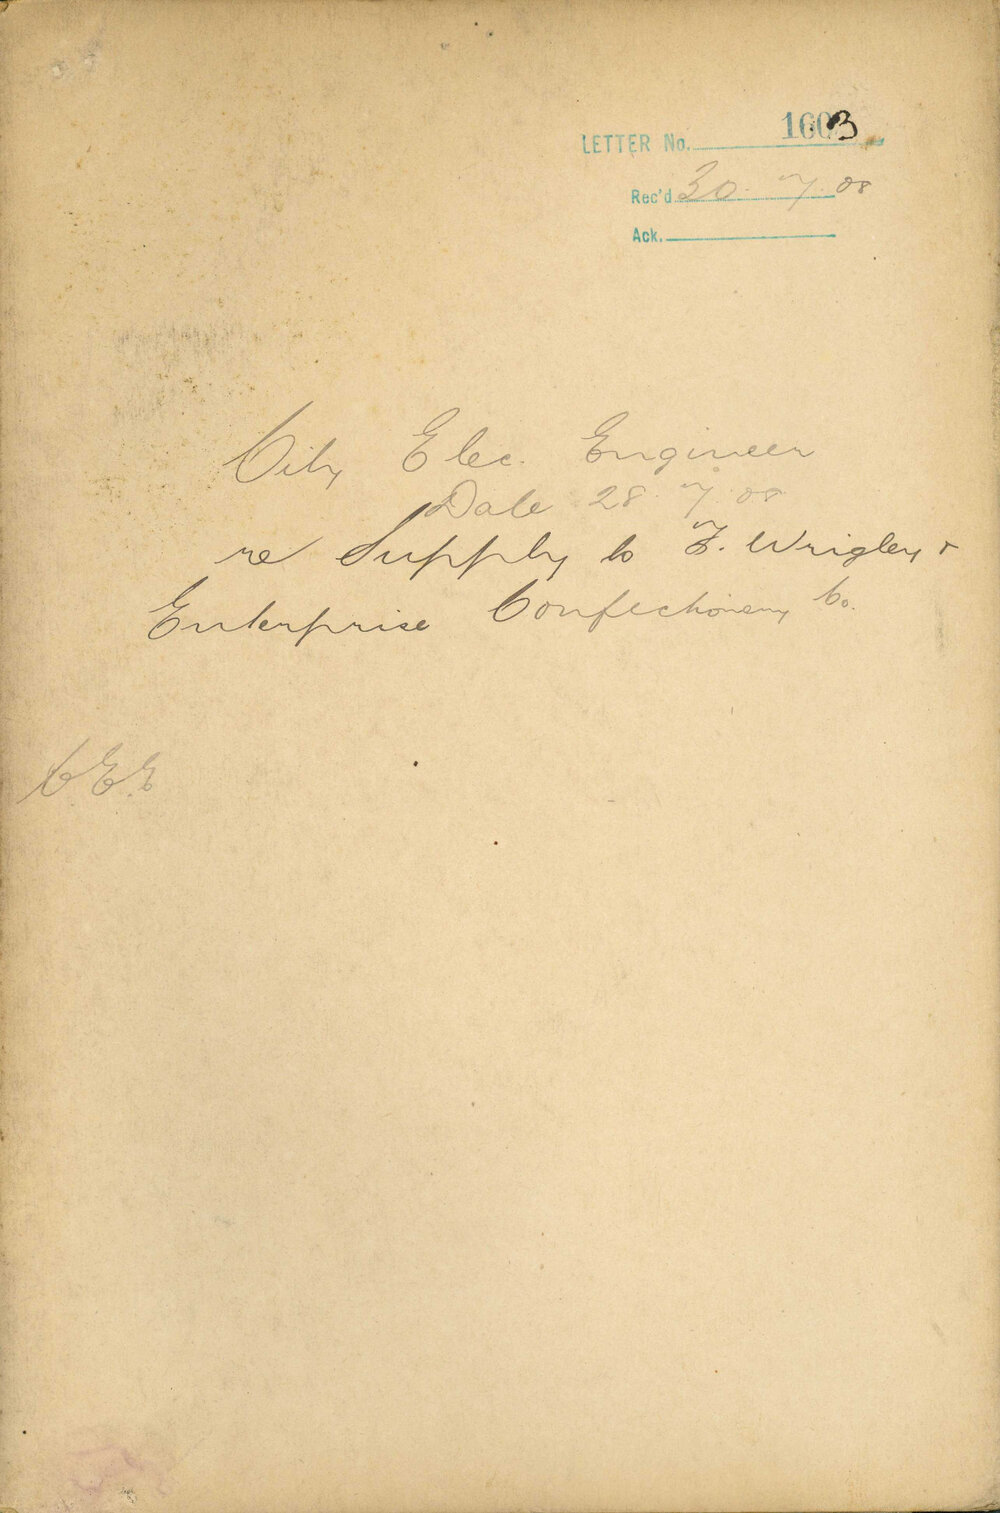 LETTER No. 1603
Rec'd 30. 7. 08
Ack.
City Elec. Engineer
Date 28. 7. 08
re Supply to F. Wrigley &
Enterprise Confectionery Co.
C.E.E.